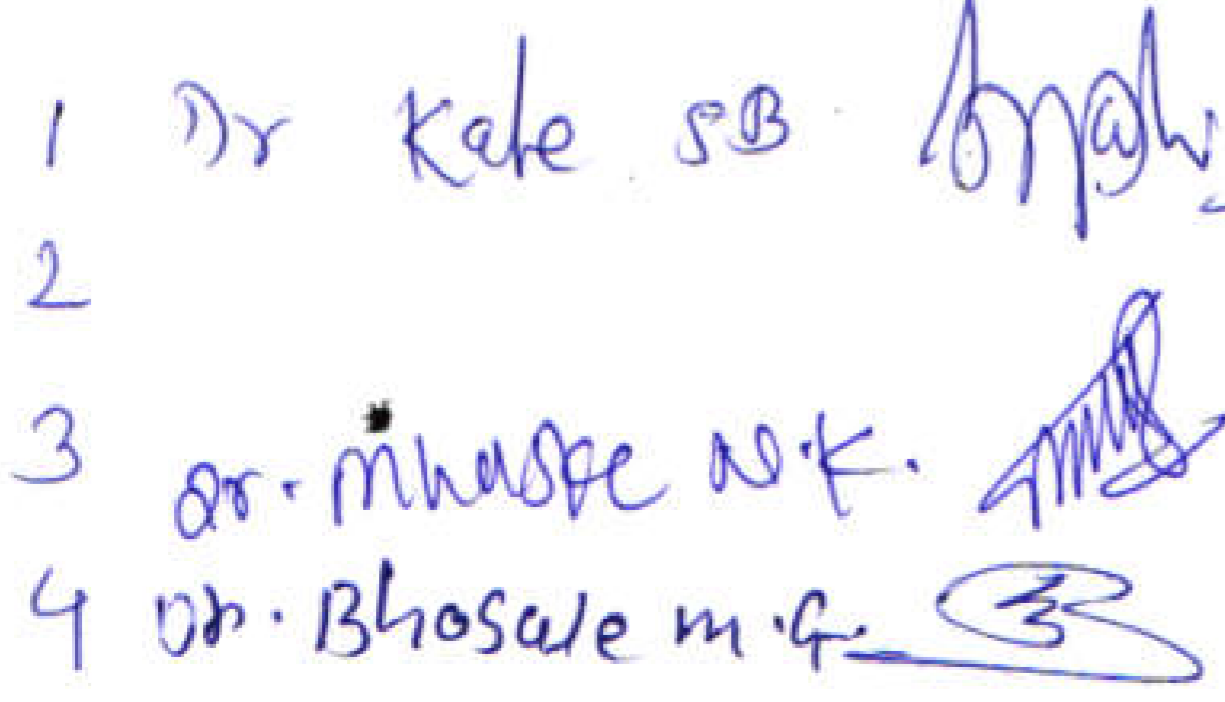 1 Dr Kale SB
2
3 Dr. Mhaske N.K.
4 Dr. Bhosale M.G.